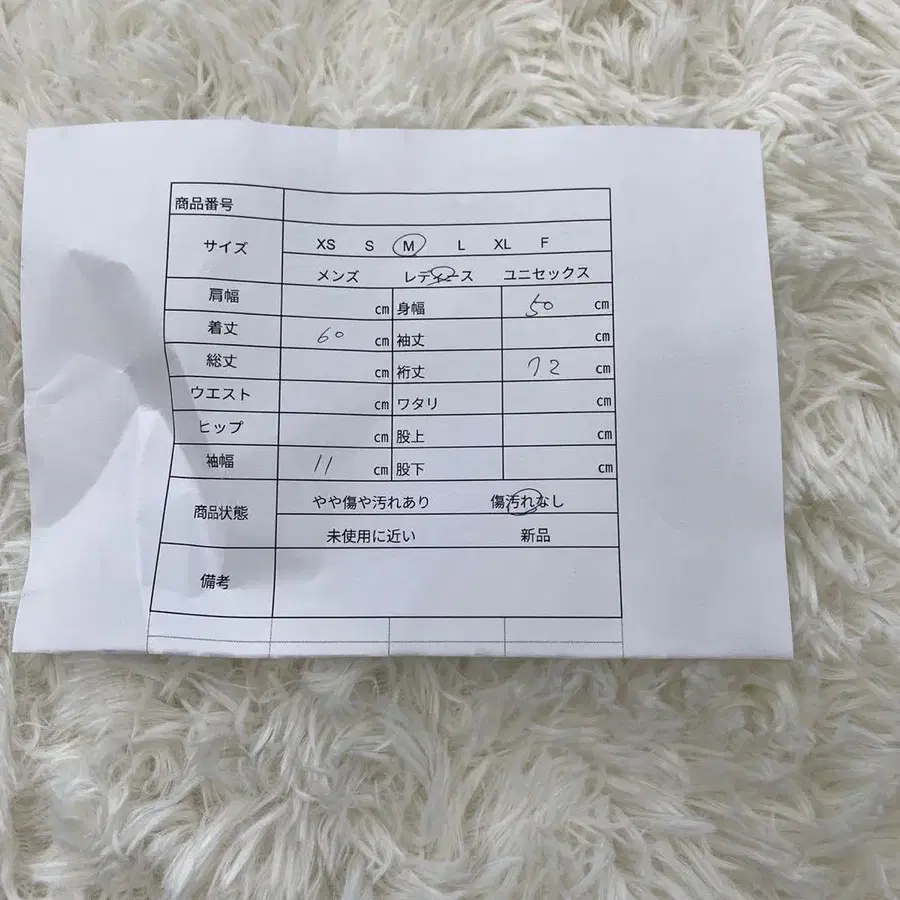 商品番号
サイズ XS S M L XL F
メンズ レディース ユニセックス
肩幅 cm 身幅 50 cm
着丈 60 cm 袖丈 cm
総丈 cm 裄丈 72 cm
ウエスト cm ワタリ cm
ヒップ cm 股上 cm
袖幅 11 cm 股下 cm
商品状態 やや傷や汚れあり 傷汚れなし
未使用に近い 新品
備考